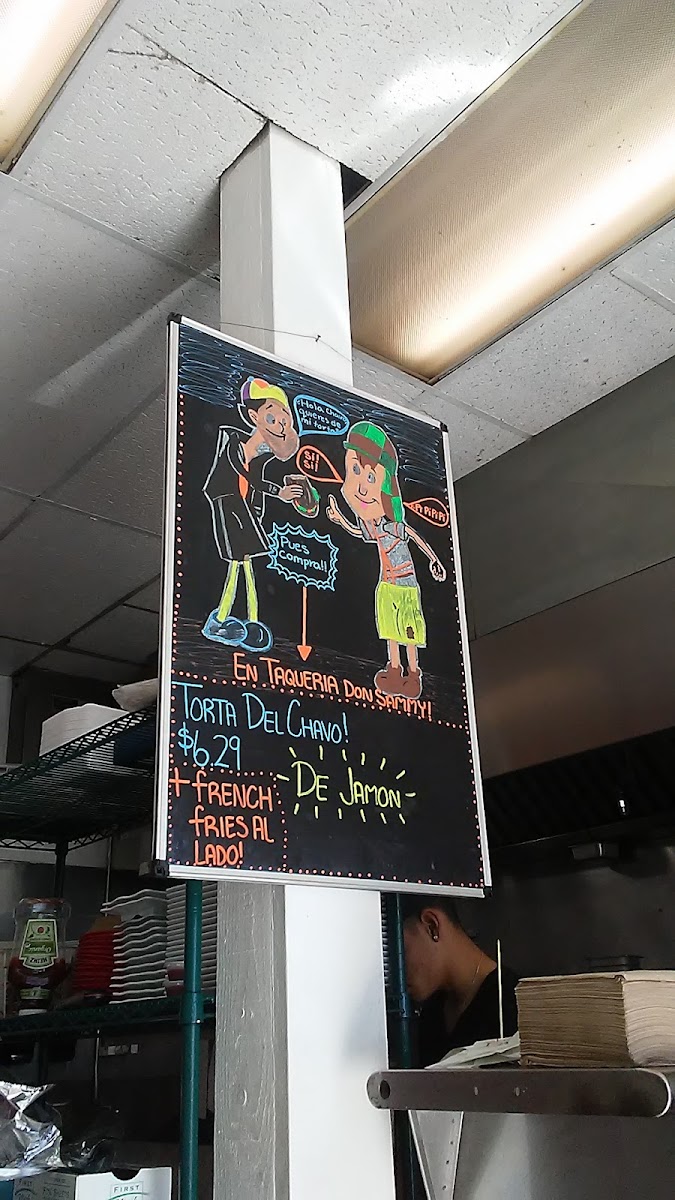 ¡Hola Chavo
quieres de
mi torta?
Si!
Si!
Pi Pi Pi Pi
Pues
Compra!!
En Taqueria Don Sammy!
Torta Del Chavo!
$6.29
De Jamon
+ french
fries al
lado!
HEINZ
First